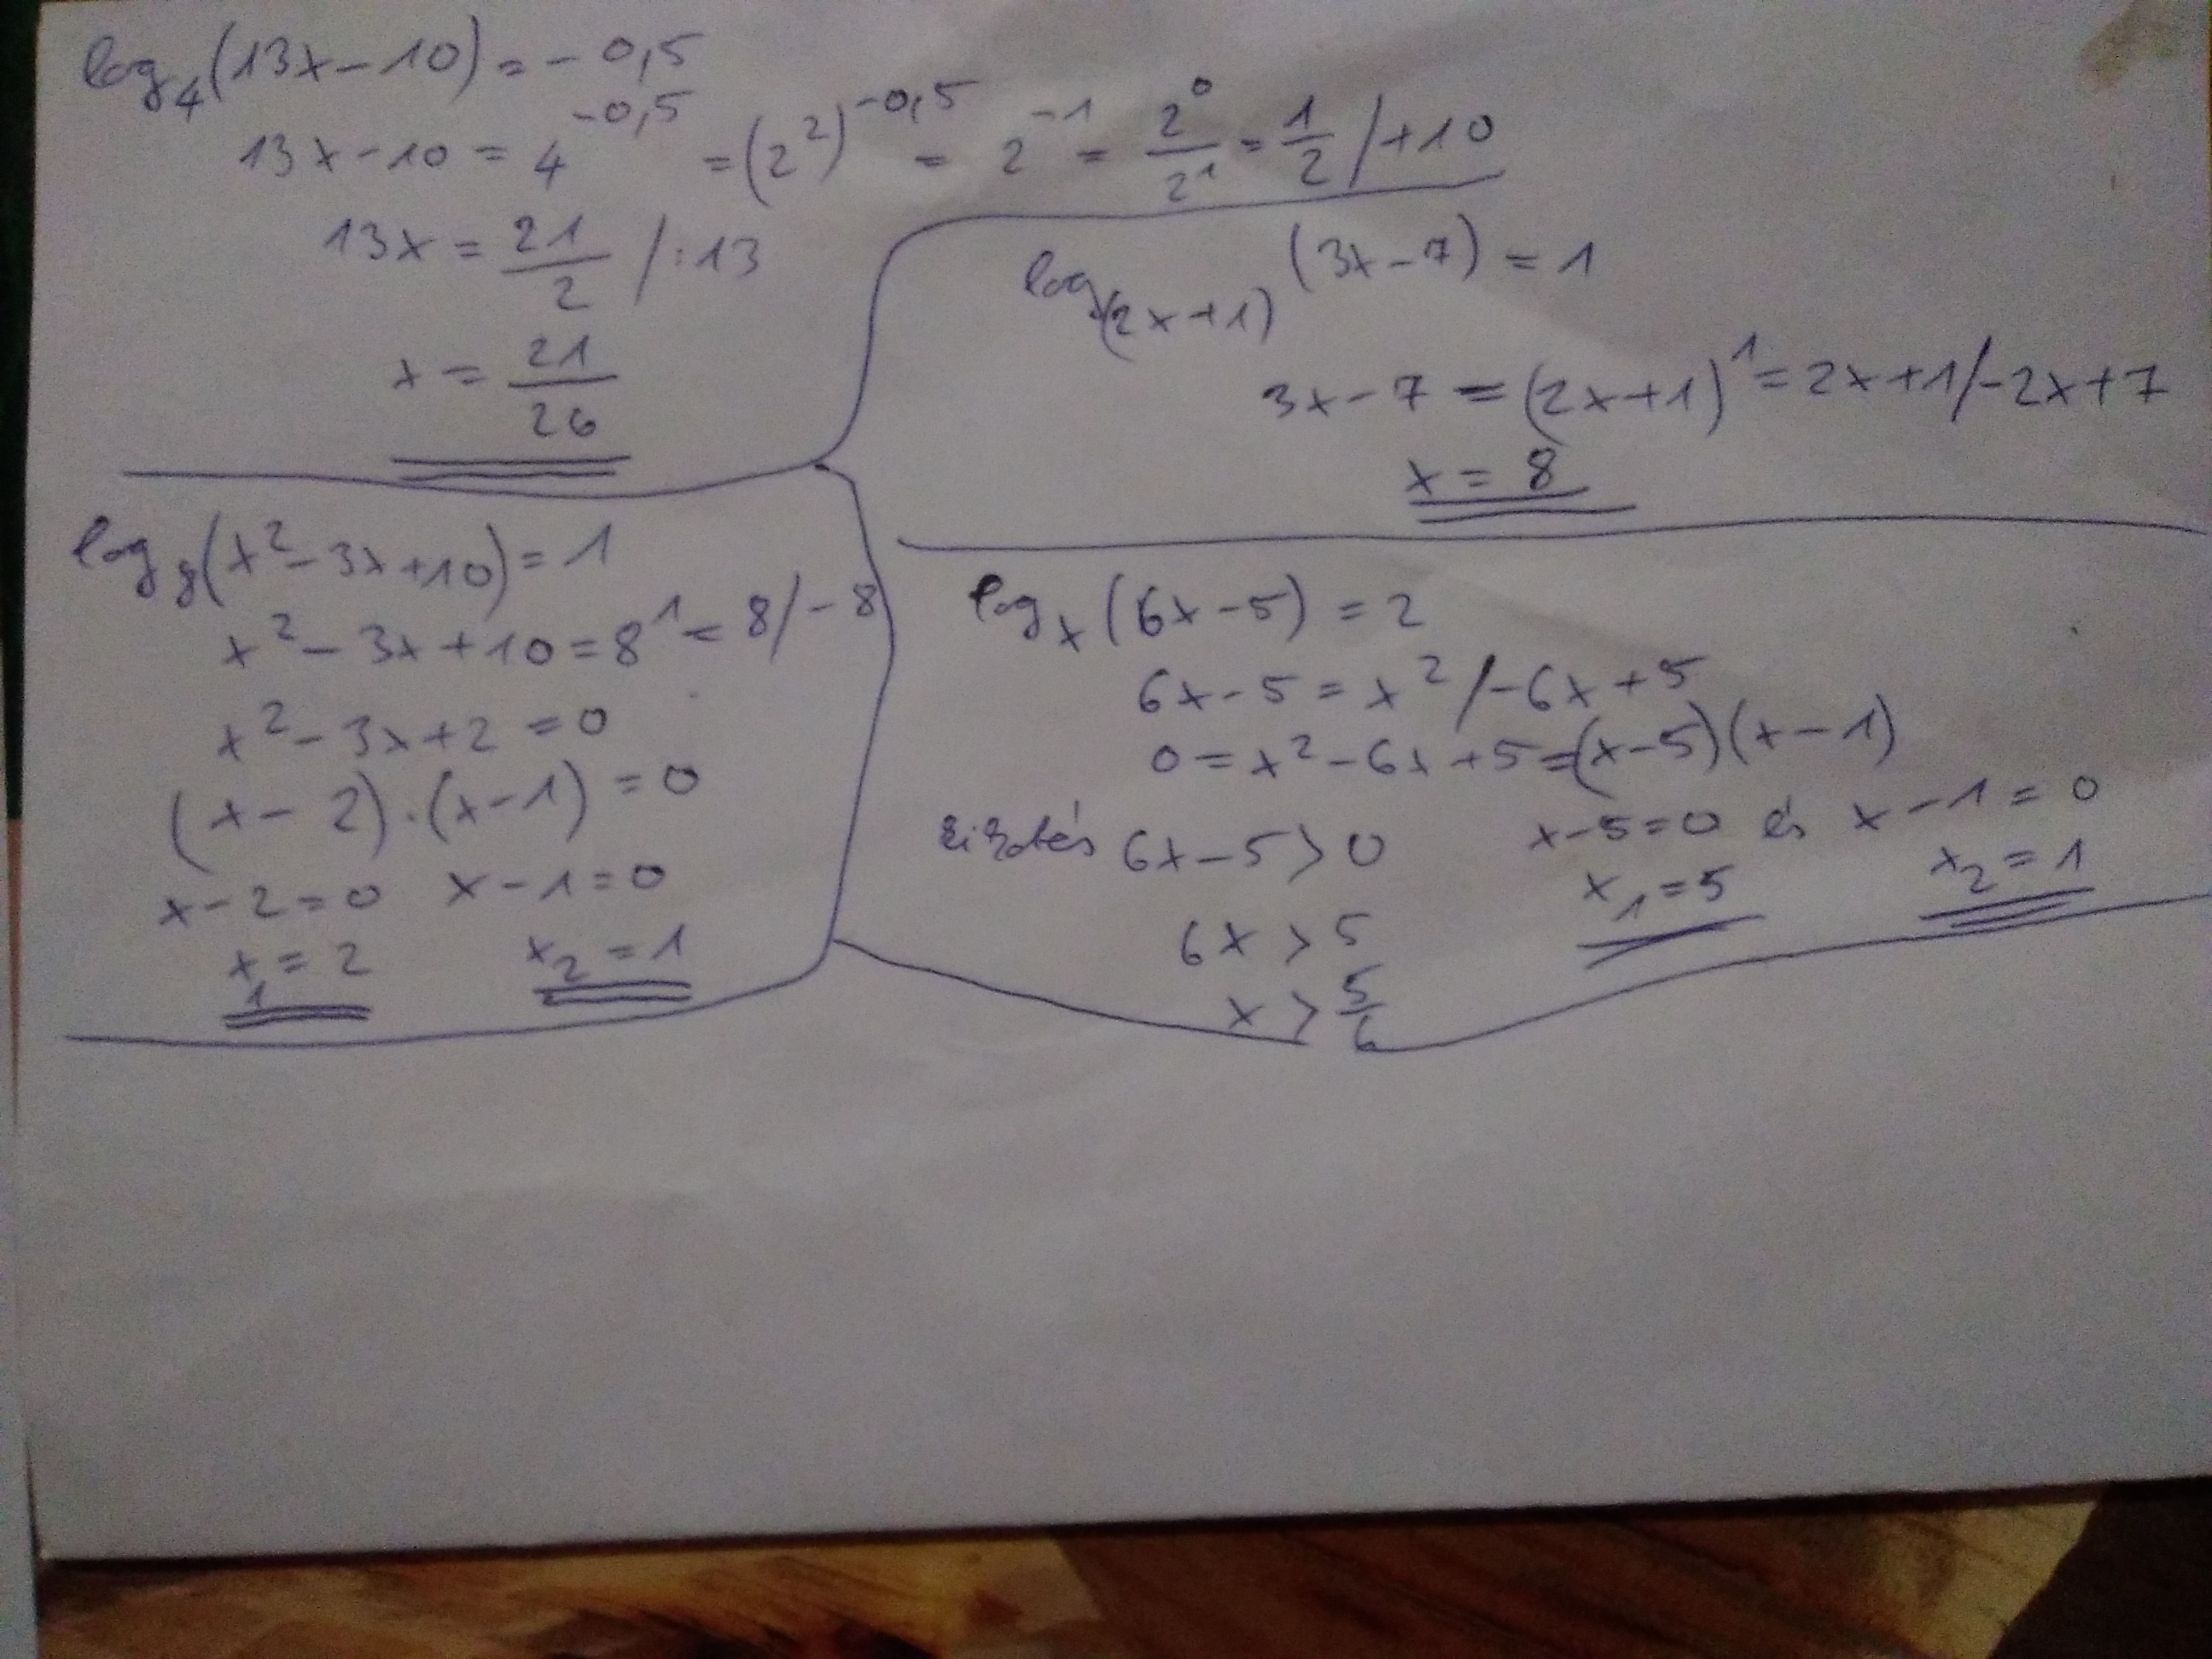 log₄(13x-10) = -0,5
13x-10 = 4^-0,5 = (2²)^-0,5 = 2^-1 = 2⁰/2¹ = 1/2 /+10
13x = 21/2 /:13
x = 21/26
log₍₂ₓ₊₁₎(3x-7) = 1
3x-7 = (2x+1)¹ = 2x+1/-2x+7
x = 8
log₈(x²-3x+10) = 1
x²-3x+10 = 8¹ = 8/-8
x²-3x+2 = 0
(x-2)·(x-1) = 0
x-2=0 x-1=0
x₁=2 x₂=1
logₓ(6x-5) = 2
6x-5 = x² /-6x+5
0 = x²-6x+5 = (x-5)(x-1)
kikötés 6x-5>0 x-5=0 és x-1=0
x₁=5 x₂=1
6x > 5
x > 5/6